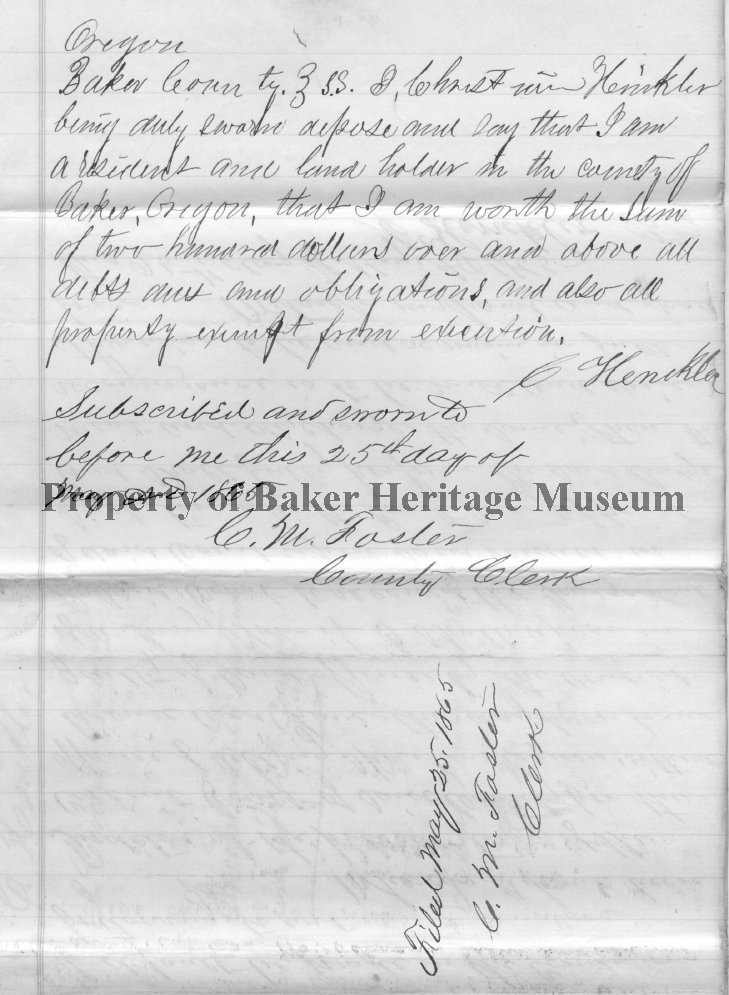 Oregon
Baker County. } S.S. I, Christian Hinkler
being duly sworn depose and say that I am
a resident and land holder in the county of
Baker, Oregon, that I am worth the Sum
of two hundred dollars over and above all
debts dues and obligations, and also all
property exempt from execution.
C Henckler
Subscribed and sworn to
before me this 25th day of
May 1865
Property of Baker Heritage Museum
C. M. Foster
County Clerk
Filed May 25. 1865
C. M. Foster
Clerk